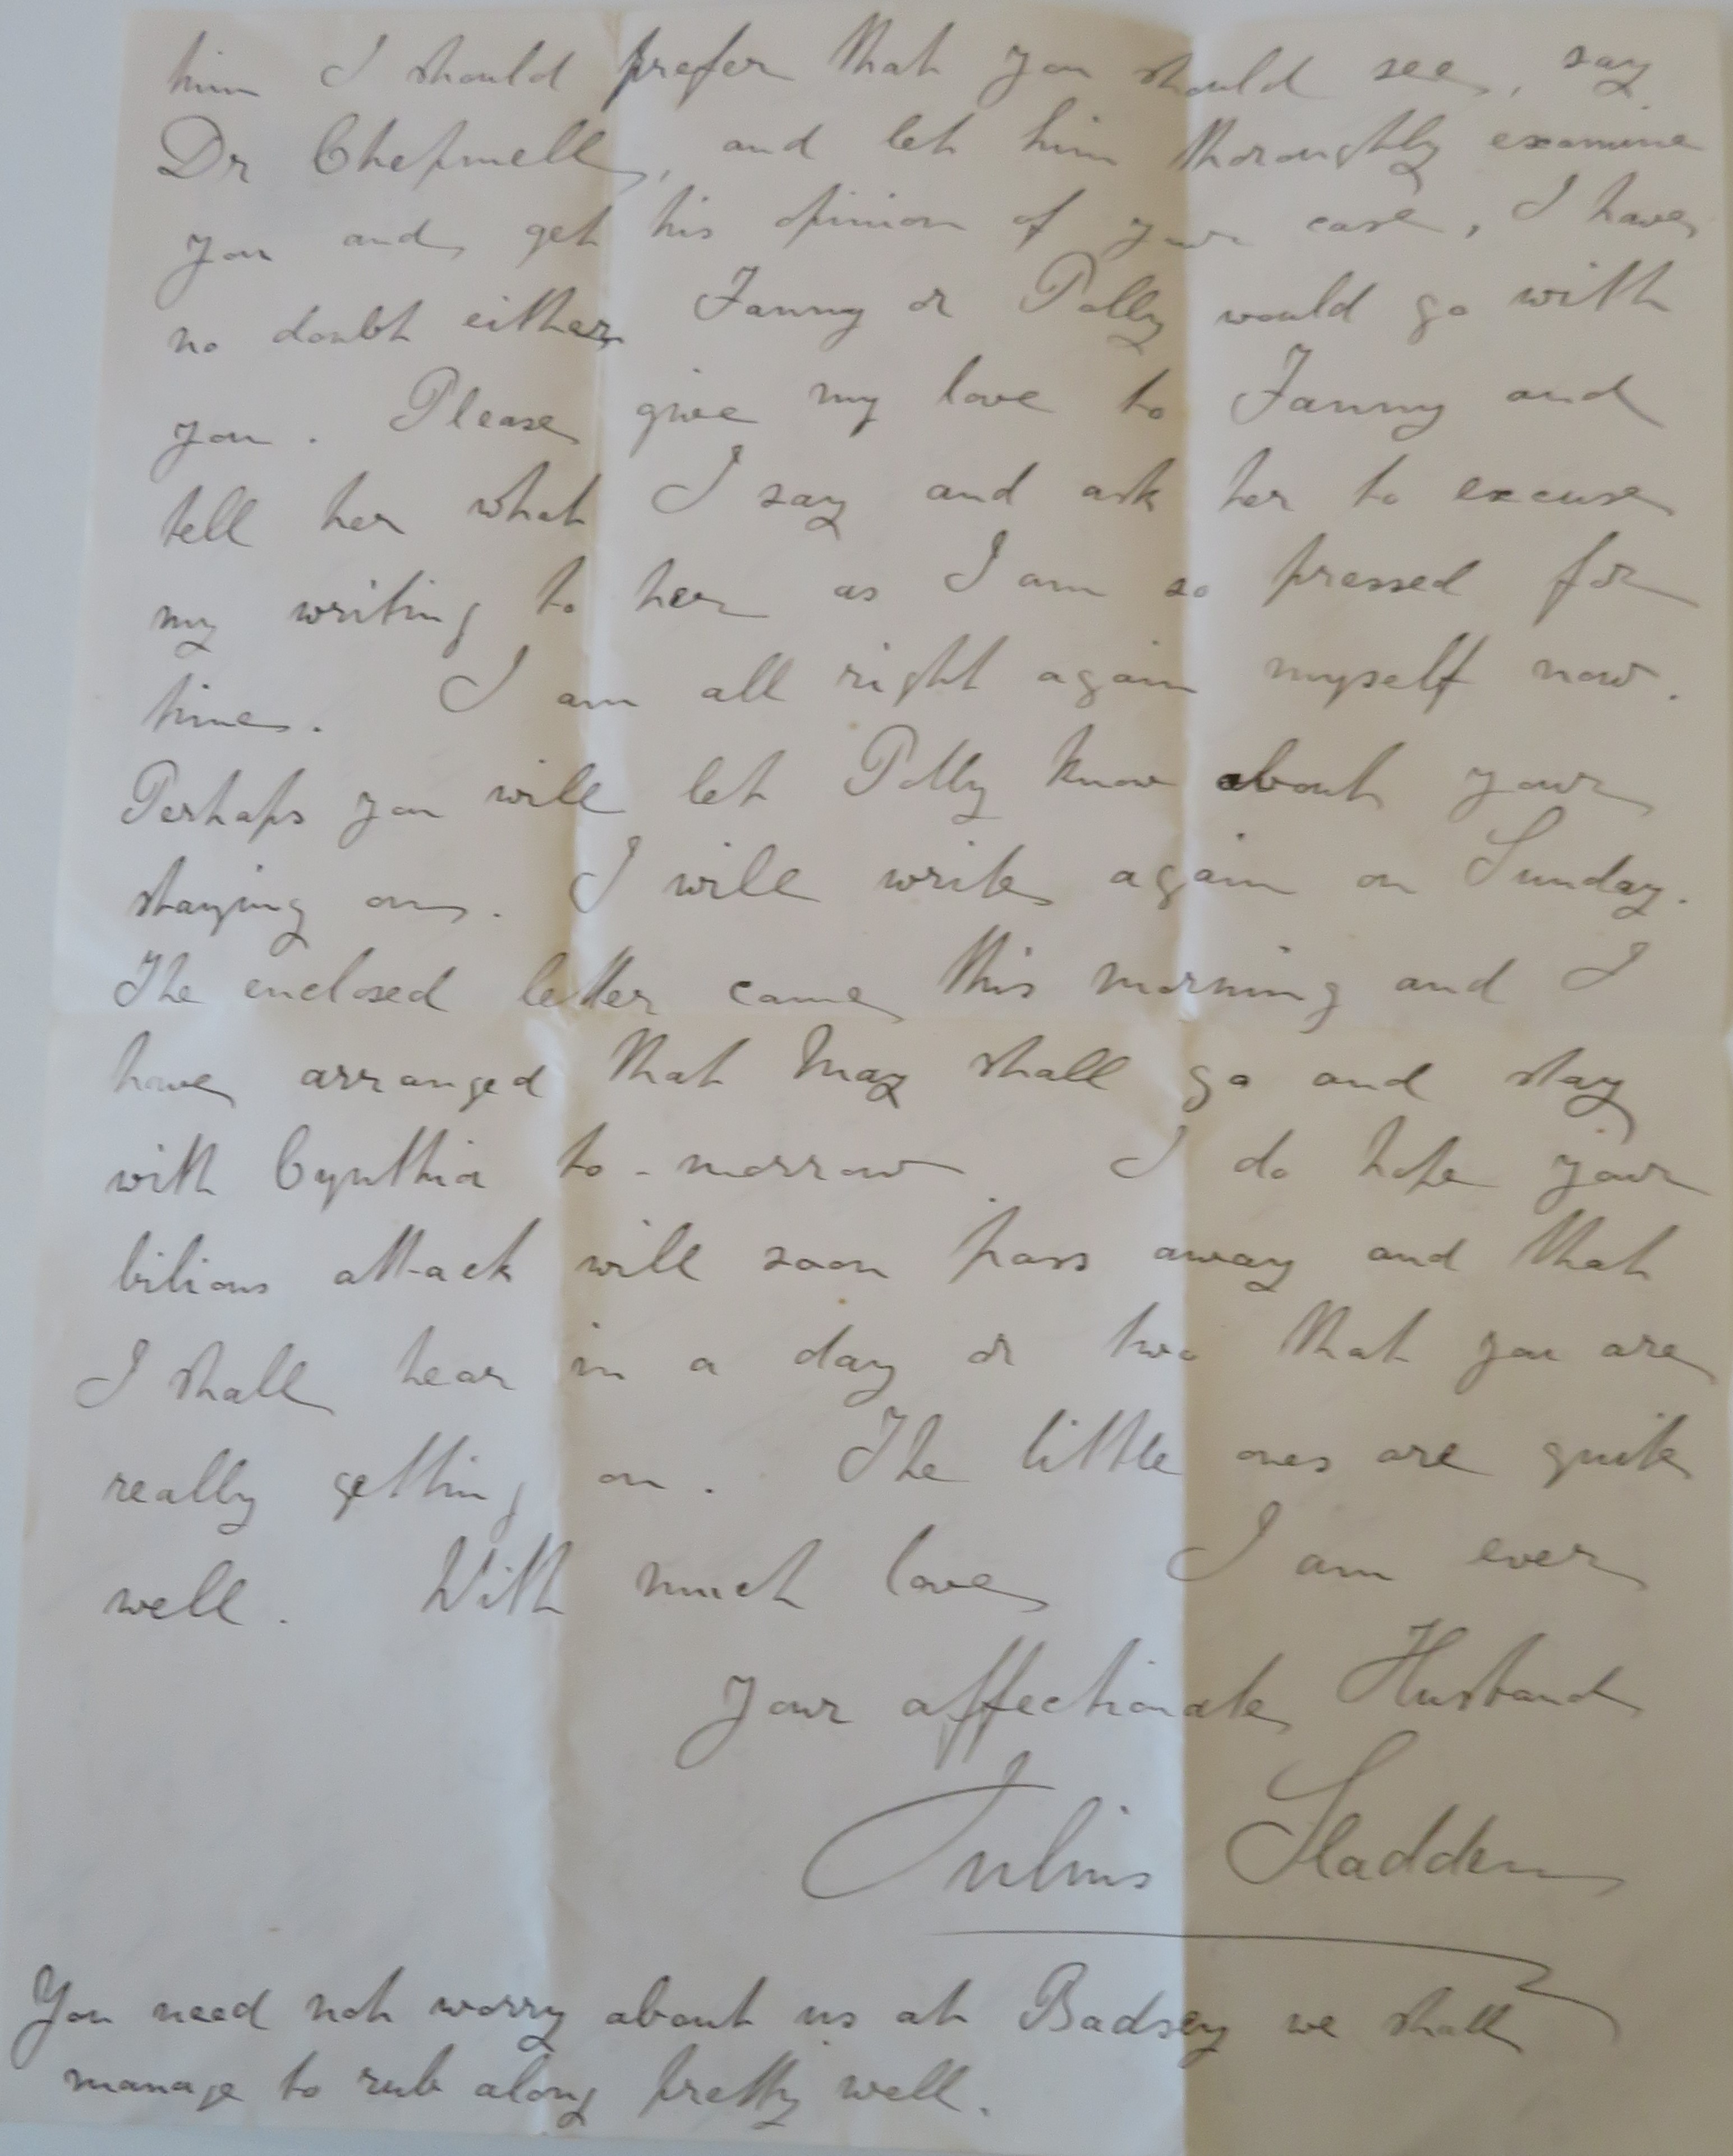 him I should prefer that you should see, say
Dr Chepmell, and let him thoroughly examine
you and get his opinion of your case, I have
no doubt either Fanny or Polly would go with
you. Please give my love to Fanny and
tell her what I say and ask her to excuse
my writing to her as I am so pressed for
time. I am all right again myself now.
Perhaps you will let Polly know about your
staying on. I will write again on Sunday.
The enclosed letter came this morning and I
have arranged that May shall go and stay
with Cynthia to-morrow. I do hope your
bilious attack will soon pass away and that
I shall hear in a day or two that you are
really getting on. The little ones are quite
well. With much love I am ever
Your affectionate Husband
Julius Sladden
You need not worry about us at Badsey we shall
manage to rub along pretty well.